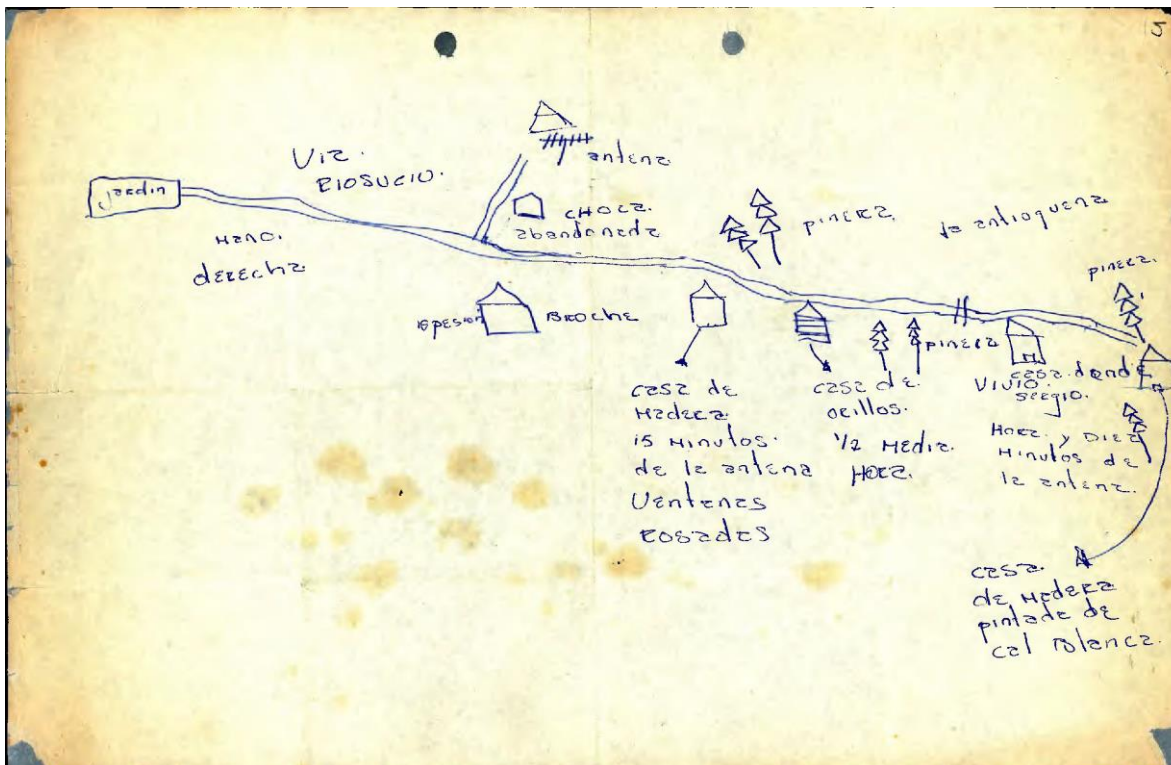 5
Via.
Riosucio.
jardin
Mano.
derecha
antena
choza.
abandonada
pinera
la antioquena
pinera.
Broche
pinera
casa de
Madera
15 Minutos.
de la antena
Ventanas
rosadas
casa de
orillos.
1/2 Media.
Hora.
casa donde
vivio.
sergio.
Hora y Diez
Minutos de
la antena.
casa.
de Madera
pintada de
cal Blanca.